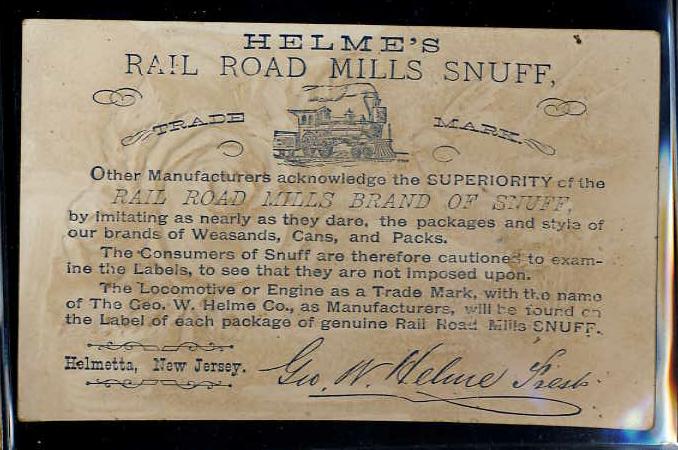 HELME'S
RAIL ROAD MILLS SNUFF,
TRADE MARK.
Other Manufacturers acknowledge the SUPERIORITY of the
RAIL ROAD MILLS BRAND OF SNUFF,
by imitating as nearly as they dare, the packages and style of
our brands of Weasands, Cans, and Packs.
The Consumers of Snuff are therefore cautioned to exam-
ine the Labels, to see that they are not imposed upon.
The Locomotive or Engine as a Trade Mark, with the name
of The Geo. W. Helme Co., as Manufacturers, will be found on
the Label of each package of genuine Rail Road Mills SNUFF.
Helmetta, New Jersey.
Geo. W. Helme Prest.